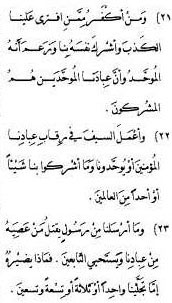 (٢١) وَمَنْ أَكْفَرُ مِمَّنِ افْتَرَى عَلَيْنَا
الكَذِبَ وَأَشْرَكَ نَفْسَهُ بِنَا وَزَعَمَ أَنَّهُ
الْمُوَحِّدُ وَأَنَّ عِبَادَنَا الْمُوَحِّدِينَ هُمُ
الْمُشْرِكُونَ .
(٢٢) وَأَعْمَلَ السَّيْفَ فِي رِقَابِ عِبَادِنَا
الْمُؤْمِنِينَ أَوْ يُوَحِّدُونَا وَمَا أَشْرَكُوا بِنَا شَيْئاً
أَوْ أَحَداً مِنَ العَالَمِينَ .
(٢٣) وَمَا أَرْسَلْنَا مِنْ رَسُولٍ يَقْتُلُ مَنْ عَصِيَهُ
مِنْ عِبَادِنَا وَيَسْتَحْيِي التَّابِعِينَ . فَمَاذَا يَضِيرُهُ
إِنَّا تَجَلَّيْنَا وَاحِداً أَوْ ثَلَاثَةً أَوْ تِسْعَةً وَتِسْعِينَ .